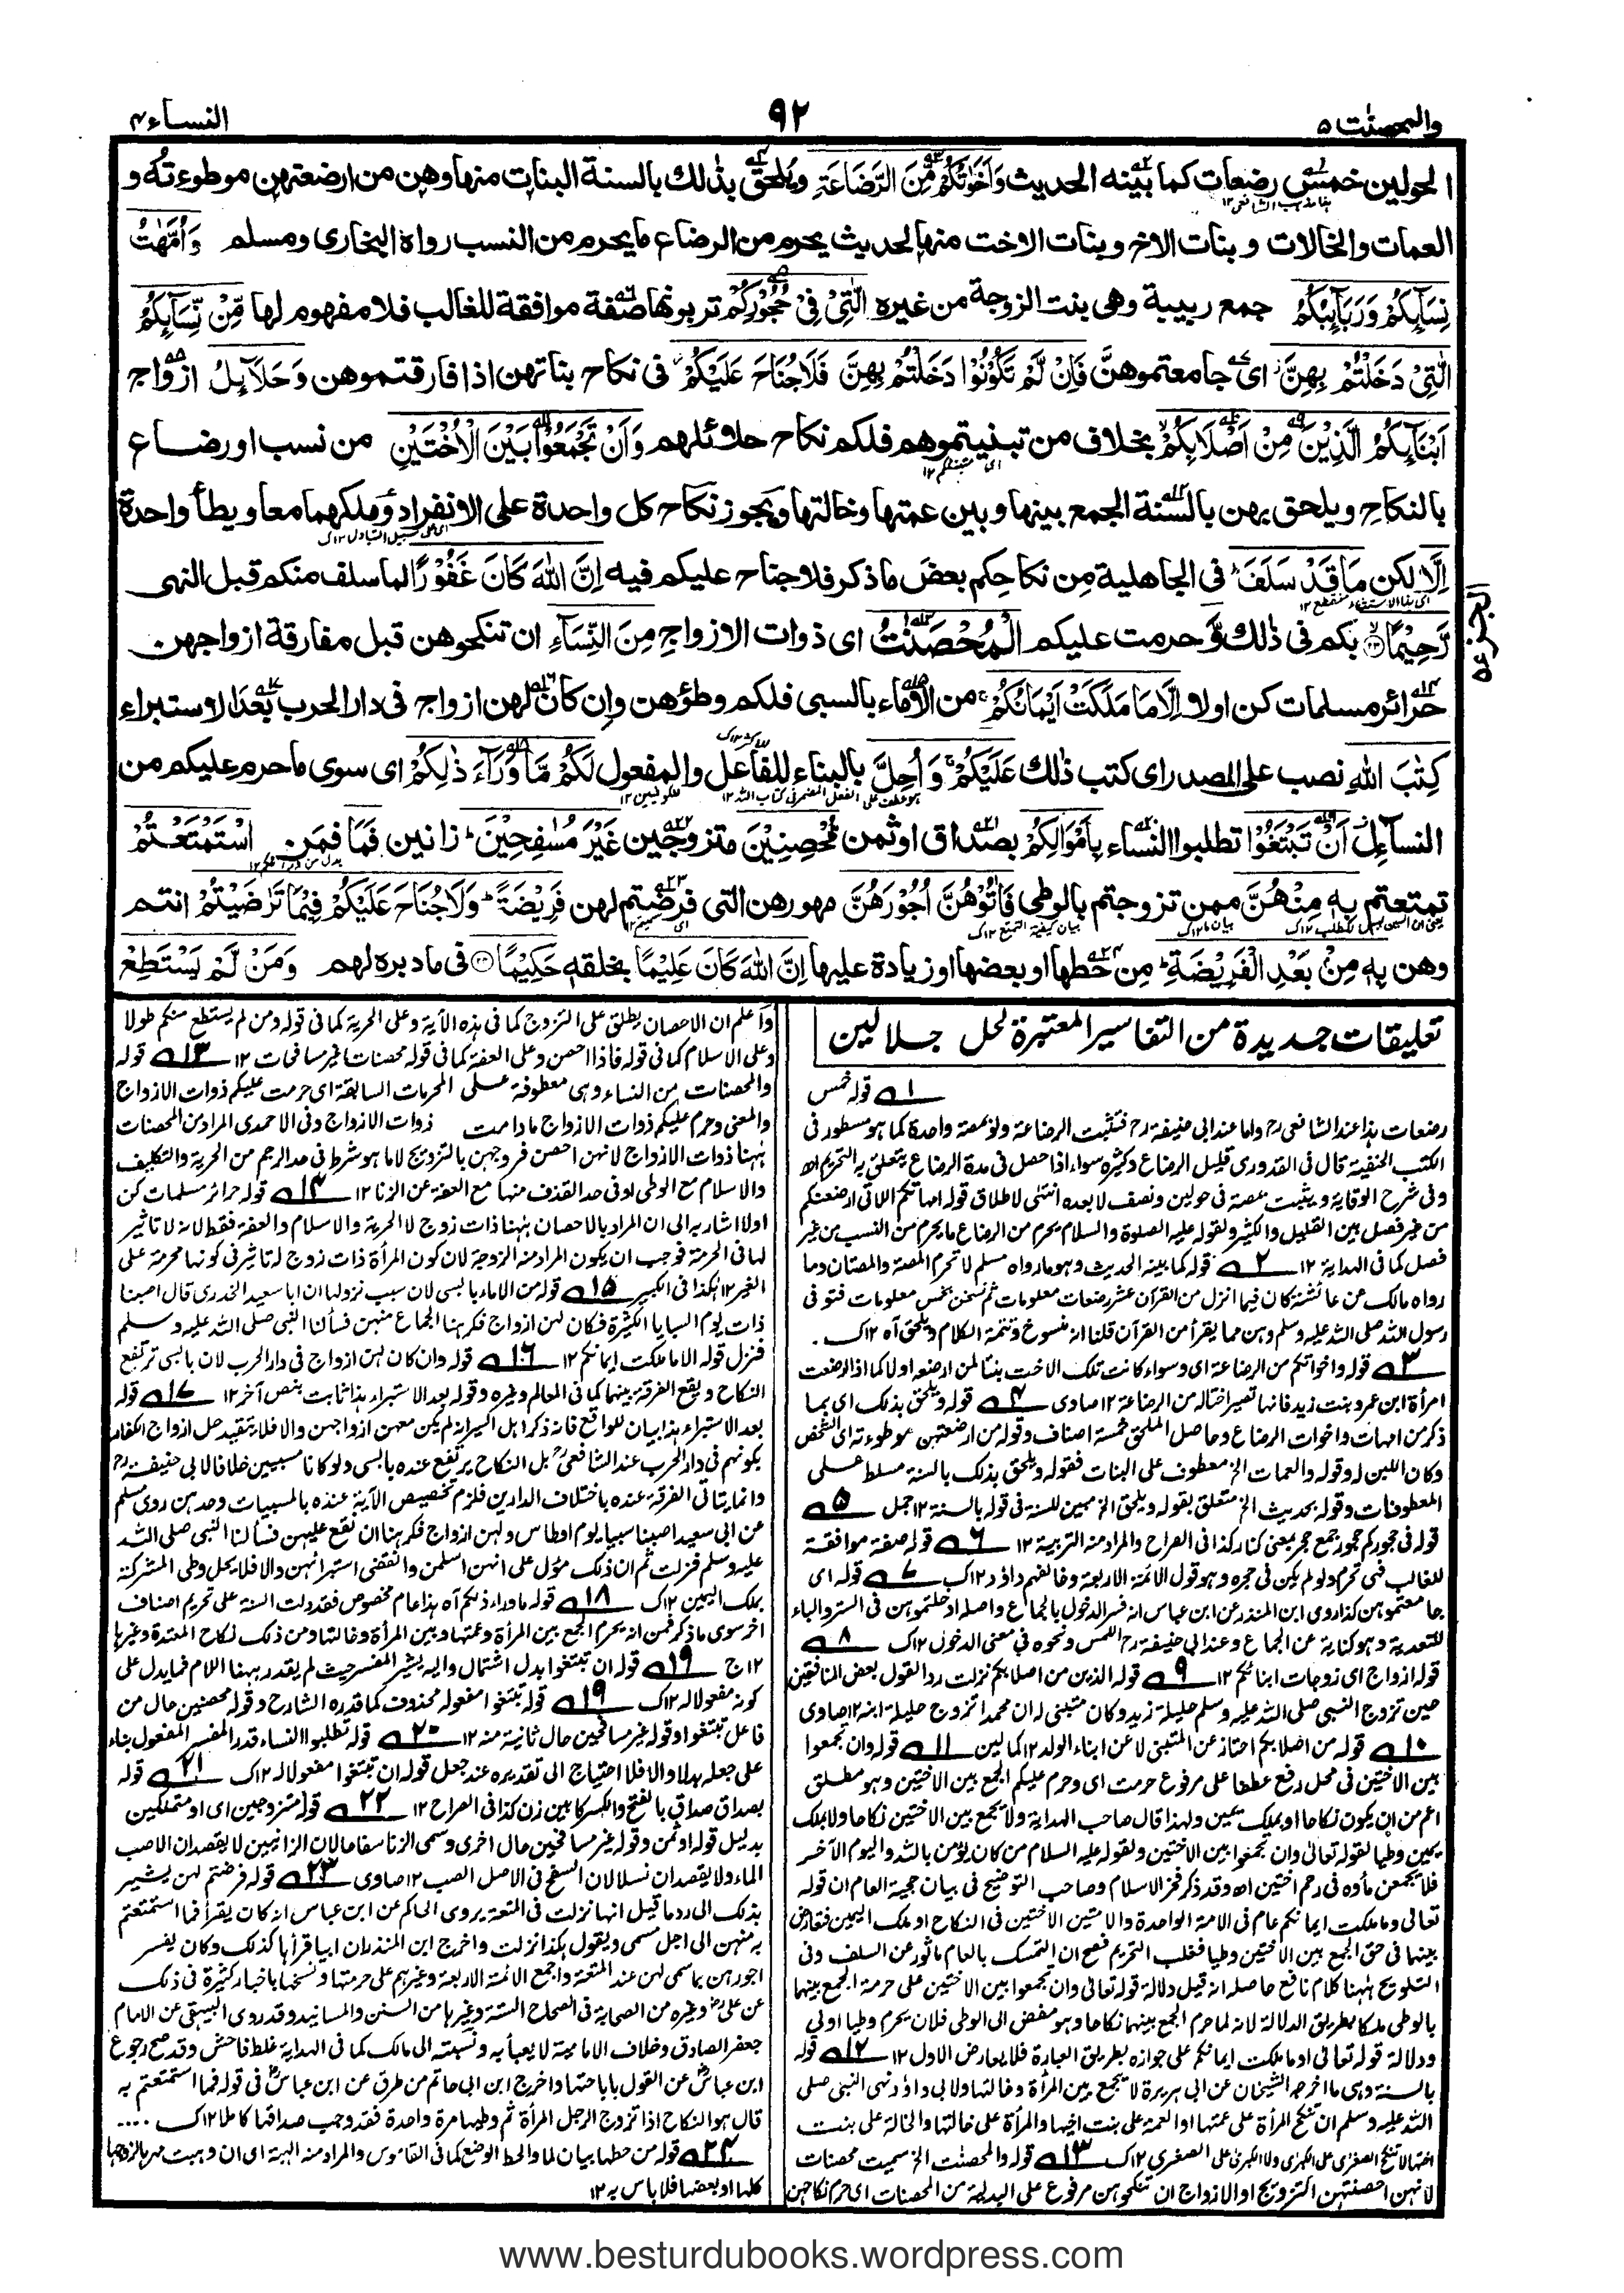 والمحصنت ۵
۹۲
النساء ۴
الحولين خمس رضعات كما بينه الحديث وَاَخَوٰتُكُمْ مِّنَ الرَّضَاعَةِ ويلحق بذلك بالسنة البنات منها وهن من ارضعتهن موطوءته و
العمات والخالات وبنات الاخ وبنات الاخت منها لحديث يحرم من الرضاع ما يحرم من النسب رواه البخاري ومسلم وَاُمَّهٰتُ
نِسَآئِكُمْ وَرَبَآئِبُكُمُ جمع ربيبة وهى بنت الزوجة من غيره الّٰتِيْ فِيْ حُجُوْرِكُمْ تربونها صفة موافقة للغالب فلا مفهوم لها مِّنْ نِّسَآئِكُمُ
الّٰتِيْ دَخَلْتُمْ بِهِنَّ اى جامعتموهن فَاِنْ لَّمْ تَكُوْنُوْا دَخَلْتُمْ بِهِنَّ فَلَاجُنَاحَ عَلَيْكُمْ فى نكاح بناتهن اذا فارقتموهن وَحَلَآئِلُ ازواج
اَبْنَآئِكُمُ الَّذِيْنَ مِنْ اَصْلَابِكُمْ بخلاف من تبنيتموهم فلكم نكاح حلائلهم وَاَنْ تَجْمَعُوْا بَيْنَ الْاُخْتَيْنِ من نسب او رضاع
بالنكاح ويلحق بهن بالسنة الجمع بينها وبين عمتها وخالتها ويجوز نكاح كل واحدة على الانفراد وملكهما معا ويطأ واحدة
اِلَّا لكن مَا قَدْ سَلَفَ فى الجاهلية من نكاحكم بعض ما ذكر فلا جناح عليكم فيه اِنَّ اللهَ كَانَ غَفُوْرًا لما سلف منكم قبل النهى
رَّحِيْمًا بكم فى ذلك وَّ حرمت عليكم الْمُحْصَنٰتُ اى ذوات الازواج مِنَ النِّسَآءِ ان تنكحوهن قبل مفارقة ازواجهن
حرائر مسلمات كن اولا اِلَّا مَا مَلَكَتْ اَيْمَانُكُمْ من الاماء بالسبى فلكم وطؤهن وان كان لهن ازواج فى دار الحرب بعد الاستبراء
كِتٰبَ اللهِ نصب على المصدر اى كتب ذلك عَلَيْكُمْ وَاُحِلَّ بالبناء للفاعل والمفعول لَكُمْ مَّا وَرَآءَ ذٰلِكُمْ اى سوى ما حرم عليكم من
النسآئل اَنْ تَبْتَغُوْا تطلبوا النساء بِاَمْوَالِكُمْ بصداق او ثمن مُّحْصِنِيْنَ متزوجين غَيْرَ مُسٰفِحِيْنَ زانين فَمَا فمن اسْتَمْتَعْتُمْ
تمتعتم بِهٖ مِنْهُنَّ ممن تزوجتم بالوطى فَاٰتُوْهُنَّ اُجُوْرَهُنَّ مهورهن التى فرضتم لهن فَرِيْضَةً وَلَاجُنَاحَ عَلَيْكُمْ فِيْمَا تَرٰضَيْتُمْ انتم
وهن بِهٖ مِنْ بَعْدِ الْفَرِيْضَةِ من حطها او بعضها او زيادة عليها اِنَّ اللهَ كَانَ عَلِيْمًا بخلقه حَكِيْمًا فى ما دبره لهم وَمَنْ لَّمْ يَسْتَطِعْ
تعليقات جديدة من التفاسير المعتبرة لحل جلالين
۱ قوله خمس
رضعات هذا عند الشافعي رح واما عند ابى حنيفة رح فتثبت الرضاعة ولو بمصة واحدة كما هو مسطور فى
الكتب الحنفية قال فى القدورى قليل الرضاع وكثيره سواء اذا حصل فى مدة الرضاع يتعلق به التحريم اه
وفى شرح الوقاية ويثبت بمصة فى حولين ونصف لا بعده انتهى لاطلاق قوله امهاتكم اللاتى ارضعنكم
من غير فصل بين القليل والكثير ولقوله عليه الصلوة والسلام يحرم من الرضاع ما يحرم من النسب من غير
فصل كما فى الهداية ۱۲ ۲ قوله كما بينه الحديث وهو ما رواه مسلم لا تحرم المصة والمصتان وما
رواه مالك عن عائشة كان فيما انزل من القرآن عشر رضعات معلومات ثم نسخن بخمس معلومات فتوفى
رسول الله صلى الله عليه وسلم وهن مما يقرأ من القرآن قلنا انه منسوخ وتتمة الكلام ويلحق آه ۱۲ك
۳ قوله واخواتكم من الرضاعة اى وسواء كانت تلك الاخت بنتا لمن ارضعه اولا كما اذا رضعت
امرأة ابن عمرو بنت زيد فانها تصير اختا له من الرضاعة ۱۲ صاوى ۴ قوله ويلحق بذلك اى بما
ذكر من امهات واخوات الرضاع وحاصل الملحق خمسة اصناف وقوله من ارضعتهن موطوءته اى الشخص
وكان اللبن له وقوله والعمات الخ معطوف على البنات فقوله ويلحق بذلك بالسنة مسلط على
المعطوفات وقوله بحديث الخ متعلق بقوله ويلحق الخ مبين للسنة فى قوله بالسنة ۱۲ جمل ۵
قوله فى حجوركم حجور جمع حجر بمعنى كنار كذا فى الصراح والمراد منه التربية ۱۲ ۶ قوله صفة موافقة
للغالب فهى تحرم ولو لم يكن فى حجره وهو قول الائمة الاربعة وخالفهم داؤد ۱۲ك ۷ قوله اى
جامعتموهن كذا روى ابن المنذر عن ابن عباس انه فسر الدخول بالجماع واصله ادخلتموهن فى الستر والباء
للتعدية وهو كناية عن الجماع وعند ابى حنيفة رح اللمس ونحوه فى معنى الدخول ۱۲ك ۸
قوله ازواج اى زوجات ابنائكم ۱۲ ۹ قوله الذين من اصلابكم نزلت ردا لقول بعض المنافقين
حين تزوج النبى صلى الله عليه وسلم حليلة زيد وكان متبنى له ان محمدا تزوج حليلة ابنه ۱۲ صاوى
۱۰ قوله من اصلابكم احتاز عن المتبنى لا عن ابناء الولد ۱۲ كمالين ۱۱ قوله وان تجمعوا
بين الاختين فى محل رفع عطفا على مرفوع حرمت اى وحرم عليكم الجمع بين الاختين وهو مطلق
اعم من ان يكون نكاحا او بملك يمين ولهذا قال صاحب الهداية ولا يجمع بين الاختين نكاحا ولا بملك
يمين وطيا لقوله تعالى وان تجمعوا بين الاختين ولقوله عليه السلام من كان يؤمن بالله واليوم الآخر
فلا يجمعن ماءه فى رحم اختين اه وقد ذكر فخر الاسلام وصاحب التوضيح فى بيان حجية العام ان قوله
تعالى وما ملكت ايمانكم عام فى الامة الواحدة والامتين الاختين فى النكاح او ملك اليمين فتعارض
بينهما فى حق الجمع بين الاختين وطيا فغلب التحريم فصح ان التمسك بالعام مأثور عن السلف وفى
التلويح ههنا كلام نافع حاصله انه قيل دلالة قوله تعالى وان تجمعوا بين الاختين على حرمة الجمع بينهما
بالوطى ملكا بطريق الدلالة لانه لما حرم الجمع بينهما نكاحا وهو مفض الى الوطى فلان يحرم وطيا اولى
ودلالة قوله تعالى او ما ملكت ايمانكم على جوازه بطريق العبارة فلا يعارض الاول ۱۲ ۱۲ قوله
بالسنة وهى ما اخرجه الشيخان عن ابى هريرة لا يجمع بين المرأة وخالتها ولابى داؤد نهى النبى صلى
الله عليه وسلم ان تنكح المرأة على عمتها او العمة على بنت اخيها والمرأة على خالتها والخالة على بنت
اختها لا تنكح الصغرى على الكبرى ولا الكبرى على الصغرى ۱۲ك ۱۳ قوله والمحصنت الخ سميت محصنات
لانهن احصنتهن التزويج او الازواج ان تنكحوهن مرفوع على البدلية من المحصنات اى حرم نكاحهن
واعلم ان الاحصان يطلق على التزوج كما فى هذه الآية وعلى الحرية كما فى قوله ومن لم يستطع منكم طولا
وعلى الاسلام كما فى قوله فاذا احصن وعلى العفة كما فى قوله محصنات غير مسافحات ۱۲ ۱۳ قوله
والمحصنات من النساء وهى معطوفة على المحرمات السابقة اى حرمت عليكم ذوات الازواج
والمعنى وحرم عليكم ذوات الازواج ما دامت ذوات الازواج وفى الاحمدى المراد من المحصنات
ههنا ذوات الازواج لانهن احصن فروجهن بالتزويج لا ما هو شرط فى حد الرجم من الحرية والتكليف
والاسلام مع الوطى او فى حد القذف منها مع العفة عن الزنا ۱۲ ۱۴ قوله حرائر مسلمات كن
اولا اشار به الى ان المراد بالاحصان ههنا ذات زوج لا الحرية والاسلام والعفة فقط لانه لا تاثير
لها فى الحرمة فوجب ان يكون المراد منه الزوجة لان كون المرأة ذات زوج له تاثير فى كونها محرمة على
الغير ۱۲ هكذا فى الكبير ۱۵ قوله من الاماء بالسبى لان سبب نزولها ان ابا سعيد الخدرى قال اصبنا
ذات يوم السبايا الكثيرة فكان لهن ازواج فكرهنا الجماع منهن فسألنا النبى صلى الله عليه وسلم
فنزل قوله الا ما ملكت ايمانكم ۱۲ ۱۶ قوله وان كان لهن ازواج فى دار الحرب لان بالسبى ترتفع
النكاح ويقع الفرقة بينهما كما فى المعالم وغيره وقوله بعد الاستبراء هذا ثابت بنص آخر ۱۲ ۱۷ قوله
بعد الاستبراء هذا بيان للواقع فانه ذكر اهل السير انه لم يكن معهن ازواجهن والا فلا يتقيد حل ازواج الكفار
بكونهم فى دار الحرب عند الشافعي رح بل النكاح يرتفع عنده بالسبى ولو كانا مسبيين خلافا لابى حنيفة رح
وانما يتأتى الفرقة عنده باختلاف الدارين فلزم تخصيص الآية عنده بالمسبيات وحدهن روى مسلم
عن ابى سعيد اصبنا سبيا يوم اوطاس ولهن ازواج فكرهنا ان نقع عليهن فسألنا النبى صلى الله
عليه وسلم فنزلت ثم ان ذلك مؤل على انهن اسلمن وانقضى استبراؤهن والا فلا يحل وطى المشركة
بملك اليمين ۱۲ك ۱۸ قوله ما وراء ذلكم آه هذا عام مخصوص فقد دلت السنة على تحريم اصناف
اخر سوى ما ذكر فمن انه يحرم الجمع بين المرأة وعمتها وبين المرأة وخالتها ومن ذلك نكاح المعتدة وغيرها
۱۲ ج ۱۹ قوله ان تبتغوا بدل اشتمال واليه يشير المفسر حيث لم يقدر ههنا اللام فيما يدل على
كونه مفعولا له ۱۲ك ۱۹ قوله تبتغوا مفعوله محذوف كما قدره الشارح وقوله محصنين حال من
فاعل تبتغوا وقوله غير مسافحين حال ثانية منه ۱۲ ۲۰ قوله تطلبوا النساء قدر المفسر المفعول بناء
على جعله بدلا والا فلا احتياج الى تقديره عند جعل قوله ان تبتغوا مفعولا له ۱۲ك ۲۱ قوله
بصداق صداق بالفتح والكسر كابين زن كذا فى الصراح ۱۲ ۲۲ قوله متزوجين اى او متملكين
بدليل قوله او ثمن وقوله غير مسافحين حال اخرى وسمى الزنا سفاحا لان الزانيين لا يقصدان الا صب
الماء ولا يقصدان نسلا لان السفح فى الاصل الصب ۱۲ صاوى ۲۳ قوله فرضتم لهن يشير
بذلك الى رد ما قيل انها نزلت فى المتعة يروى الحاكم عن ابن عباس انه كان يقرأ فما استمتعتم
به منهن الى اجل مسمى ويقول هكذا نزلت واخرج ابن المنذر ان ابيا قرأها كذلك وكان يفسر
اجورهن بما سمى لهن عند المتعة واجمع الائمة الاربعة وغيرهم على حرمتها ونسخها باخبار كثيرة فى ذلك
عن على رض وغيره من الصحابة فى الصحاح الستة وغيرها من السنن والمسانيد وقد روى البيهقى عن الامام
جعفر الصادق وخلاف الامامية لا يعبأ به ونسبته الى مالك كما فى الهداية غلط فاحش وقد صح رجوع
ابن عباس رض عن القول باباحتها واخرج ابن ابى حاتم من طرق عن ابن عباس رض فى قوله فما استمتعتم به
قال هو النكاح اذا تزوج الرجل المرأة ثم وطيها مرة واحدة فقد وجب صداقها كاملا ۱۲ك ....
۲۴ قوله من حطها بيان لما والحط الوضع كما فى القاموس والمراد منه الهبة اى ان وهبت مهرها لزوجها
كلها او بعضها فلا باس به ۱۲
www.besturdubooks.wordpress.com